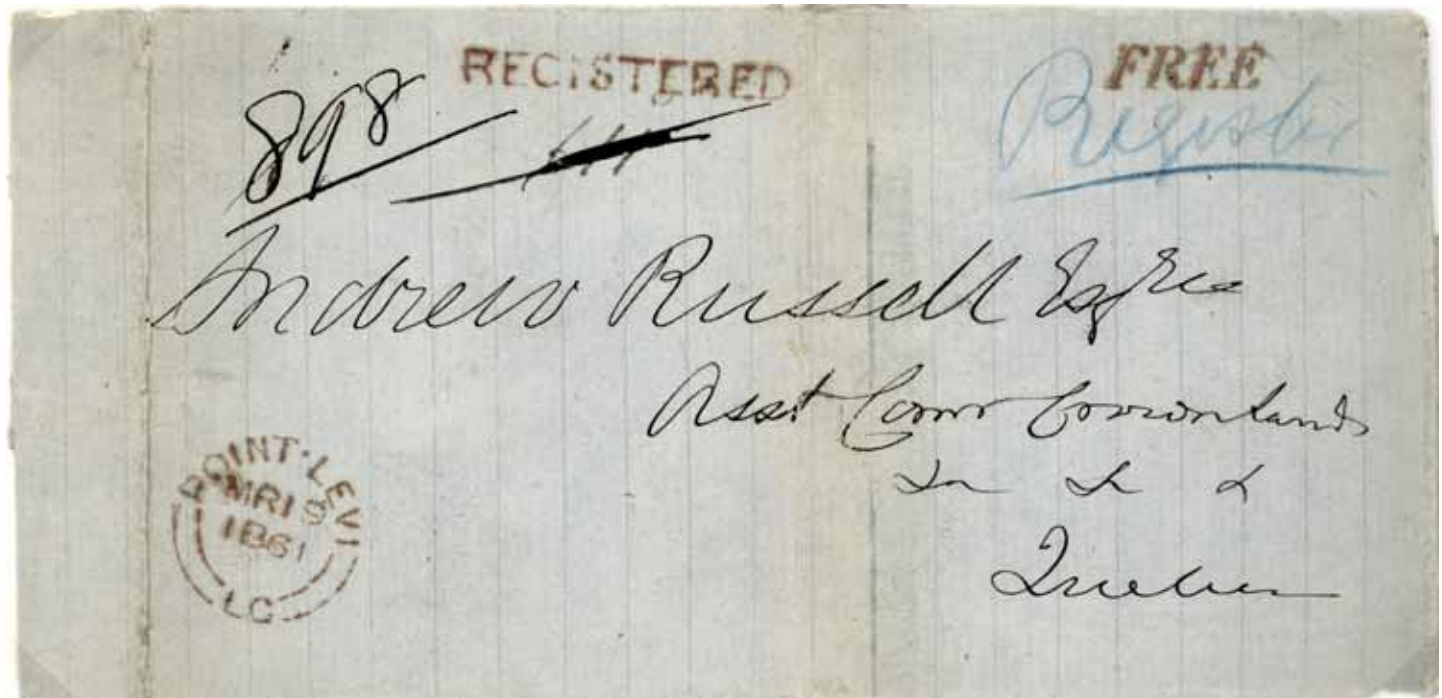 REGISTERED
FREE
898
Register
Andrew Russell Esqre
Asst Comr Crown Lands
&c &c &
Quebec
POINT·LEVI
MR 19
1861
LC